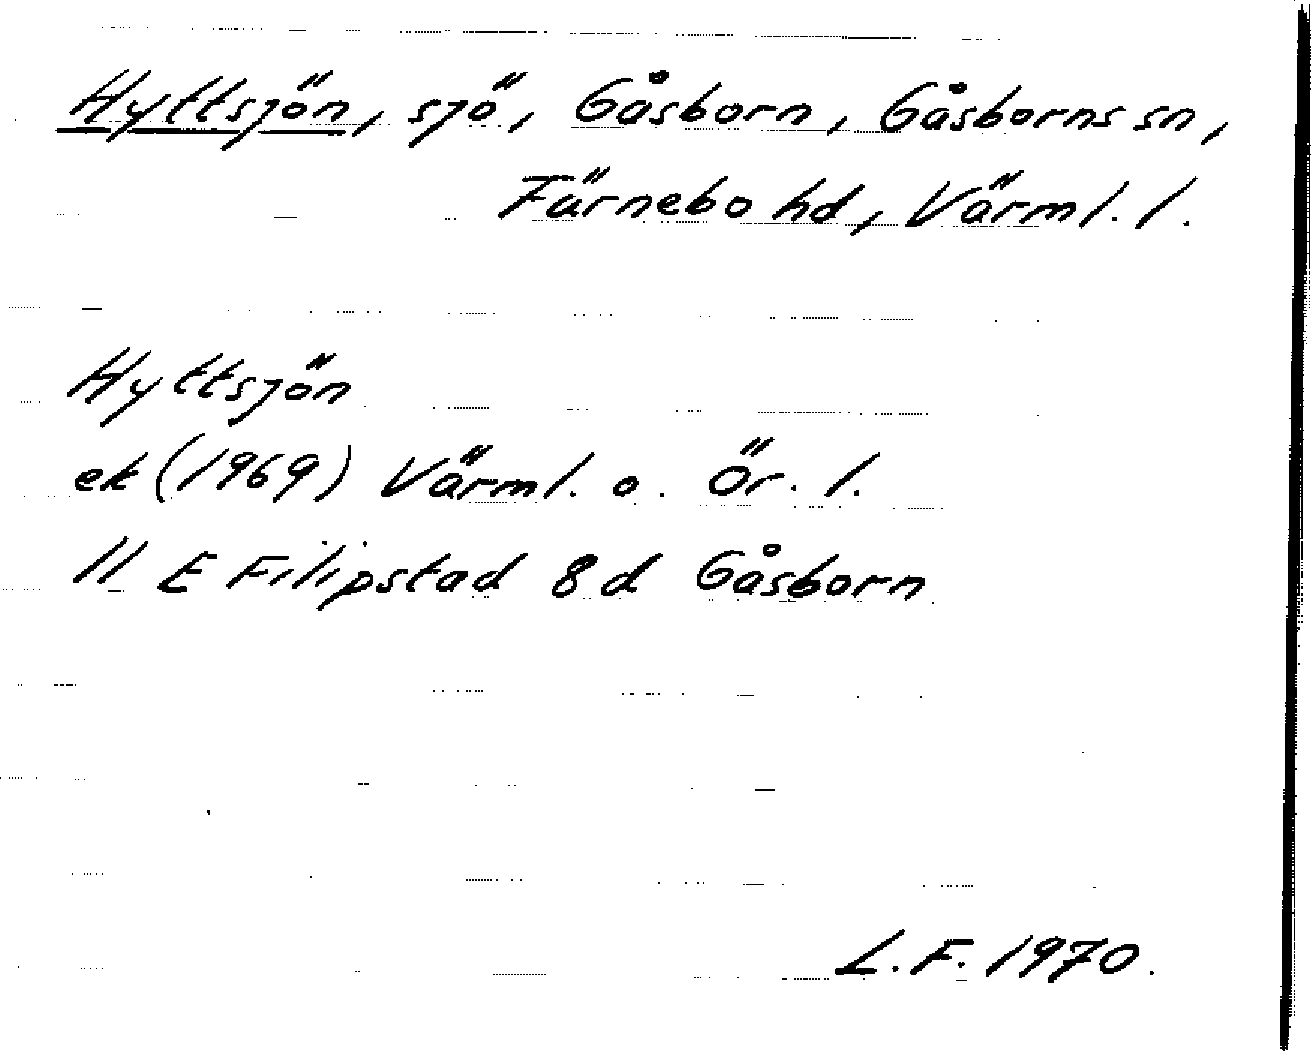 Hyttsjön, sjö, Gåsborn, Gåsborns sn,
Färnebo hd, Värml. l.
Hyttsjön
ek (1969) Värml. o. Ör. l.
11 E Filipstad 8 d Gåsborn
L.F. 1970.